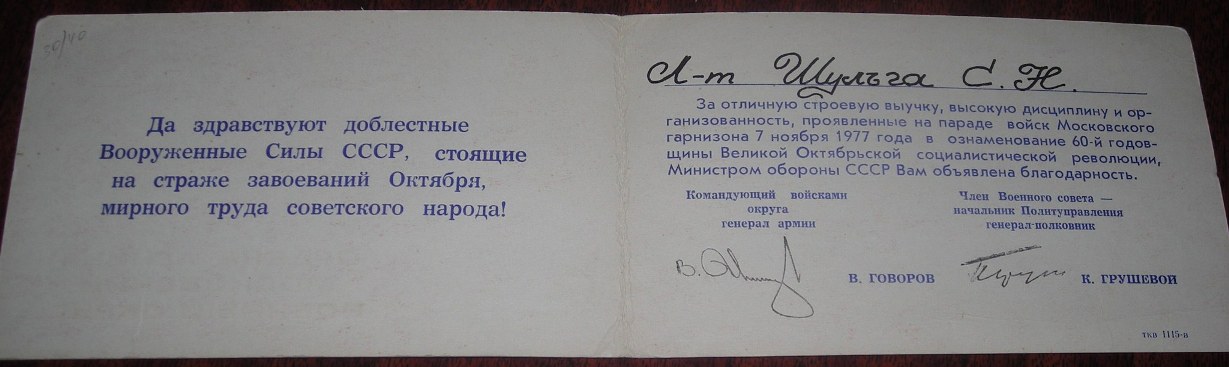 30/40
Да здравствуют доблестные
Вооруженные Силы СССР, стоящие
на страже завоеваний Октября,
мирного труда советского народа!
Л-т Шульга С. Н.
За отличную строевую выучку, высокую дисциплину и ор-
ганизованность, проявленные на параде войск Московского
гарнизона 7 ноября 1977 года в ознаменование 60-й годов-
щины Великой Октябрьской социалистической революции,
Министром обороны СССР Вам объявлена благодарность.
Командующий войсками
округа
генерал армии
В. ГОВОРОВ
Член Военного совета —
начальник Политуправления
генерал-полковник
К. ГРУШЕВОЙ
ткв 1145-в